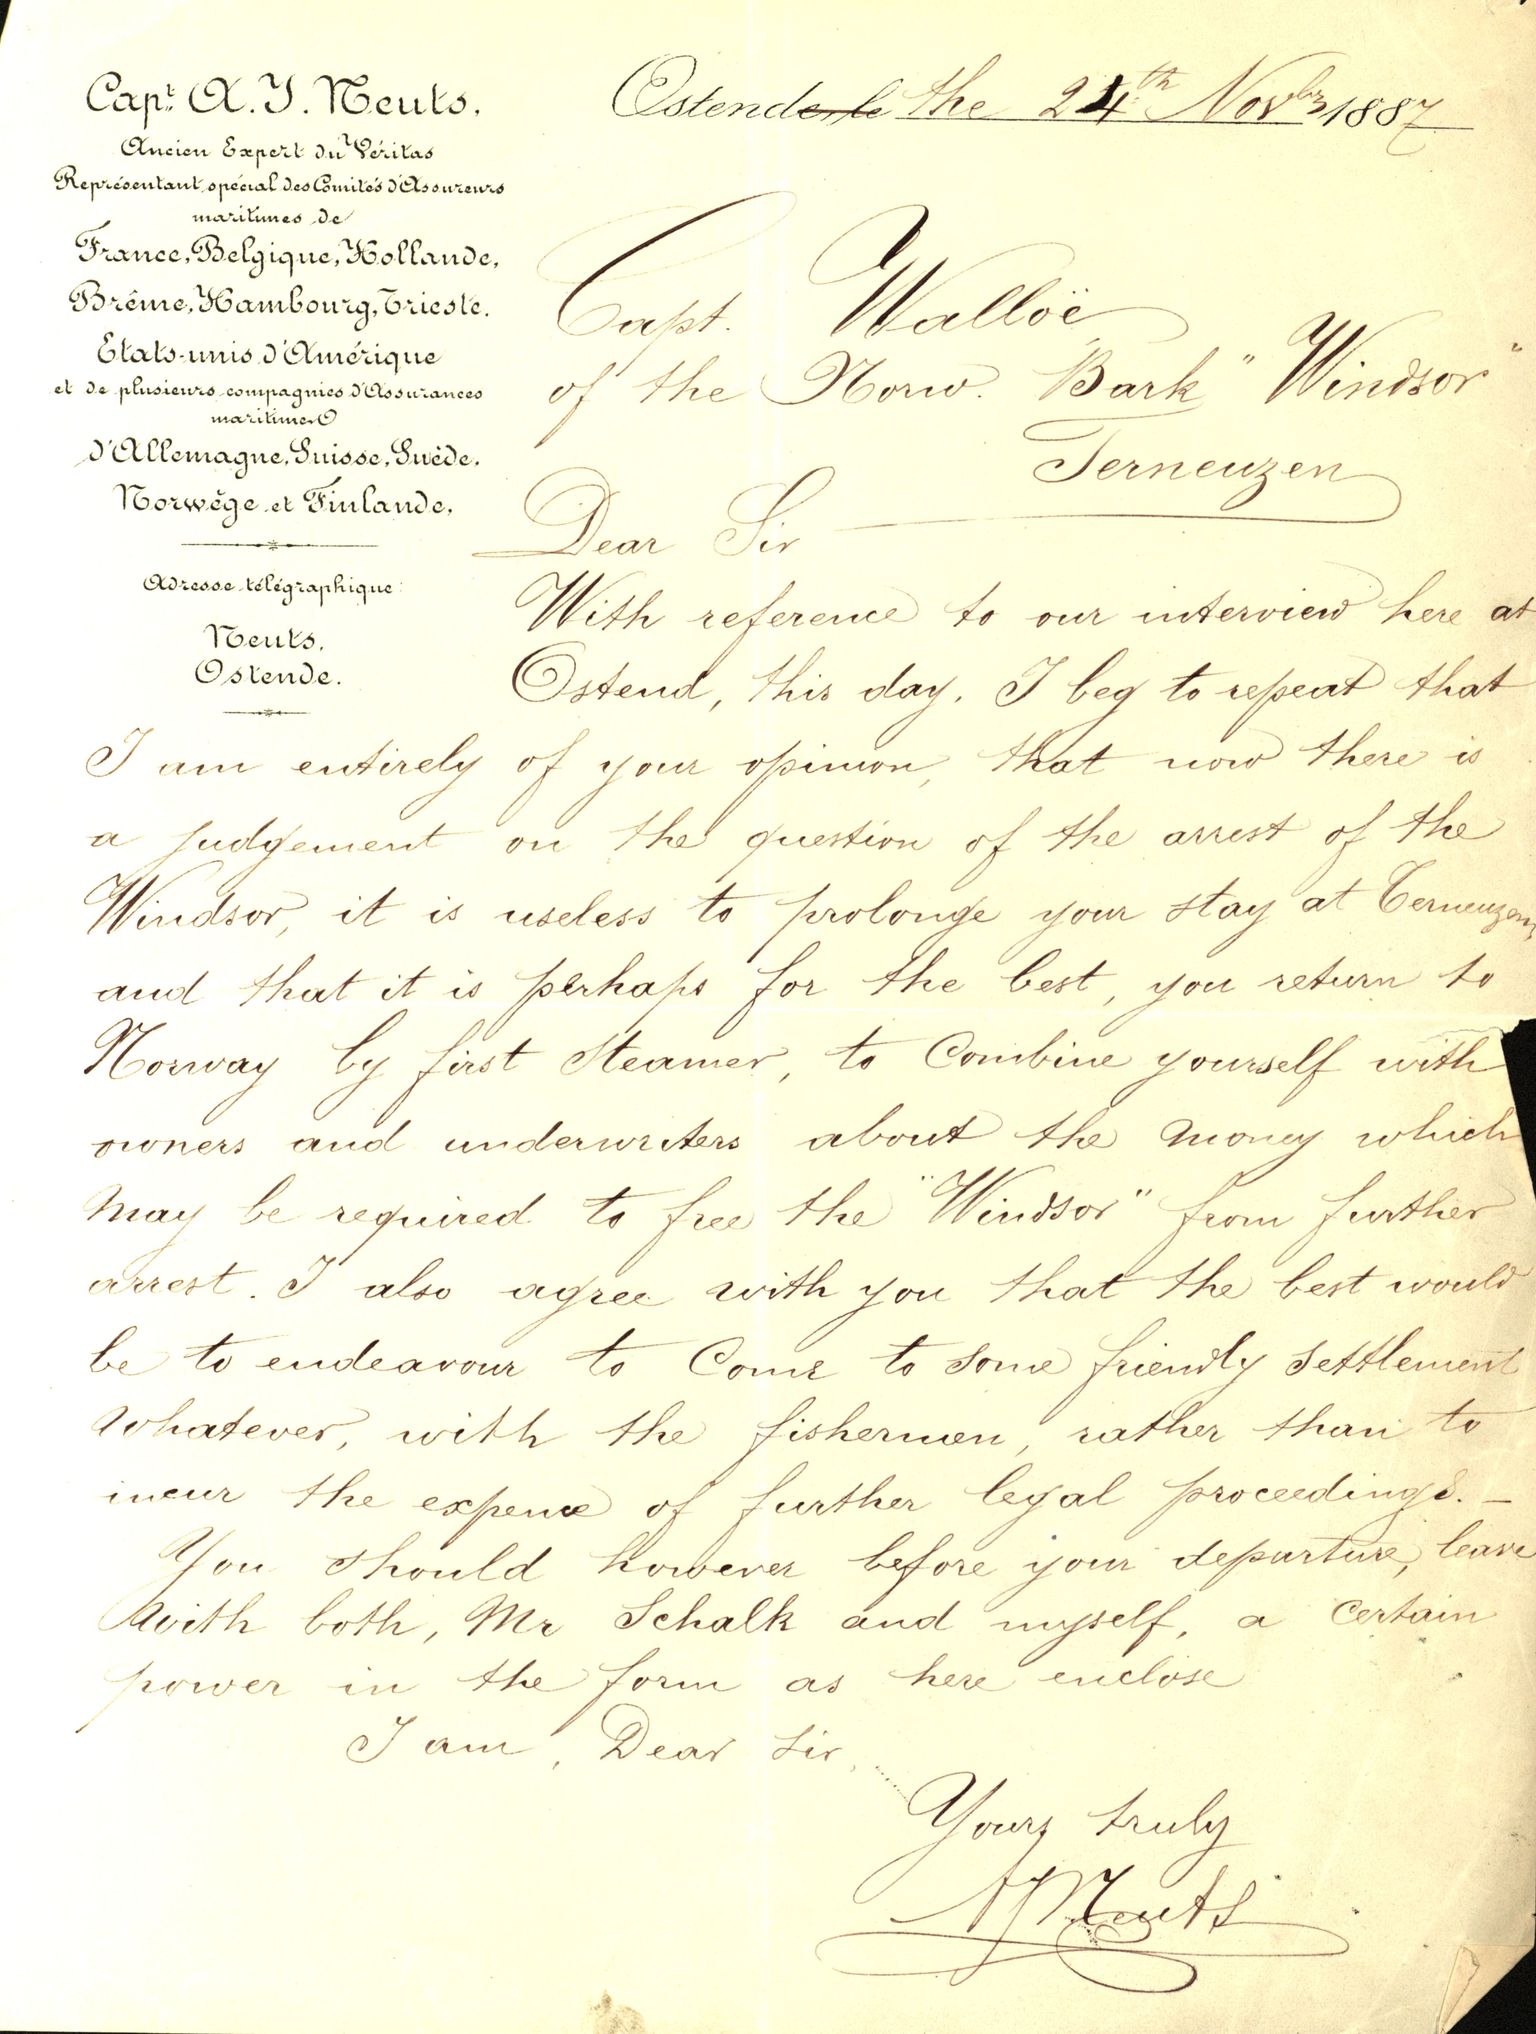 Capt. A. J. Neuts.
Ancien Expert du Véritas
Représentant spécial des Comités d'Assureurs
maritimes de
France, Belgique, Hollande,
Brême, Hambourg, Trieste.
Etats-unis d'Amérique
et de plusieurs compagnies d'Assurances
maritimes
d'Allemagne, Suisse, Suède,
Norwège et Finlande.
Adresse télégraphique:
Neuts.
Ostende.
Ostende le the 24th Novbr 1887
Capt. Walloë
of the Norw. Bark "Windsor"
Terneuzen
Dear Sir
With reference to our interview here at
Ostend, this day. I beg to repeat that
I am entirely of your opinion, that now there is
a judgement on the question of the arrest of the
Windsor, it is useless to prolonge your stay at Terneuzen,
and that it is perhaps for the best, you return to
Norway by first steamer, to Combine yourself with
owners and underwriters about the money which
may be required to free the "Windsor" from further
arrest. I also agree with you that the best would
be to endeavour to Come to some friendly settlement
whatever, with the fishermen, rather than to
incur the expense of further legal proceedings. —
You should however before your departure, leave
with both, Mr Schalk and myself, a certain
power in the form as here enclose
I am, Dear Sir,
Yours truly
AJNeuts